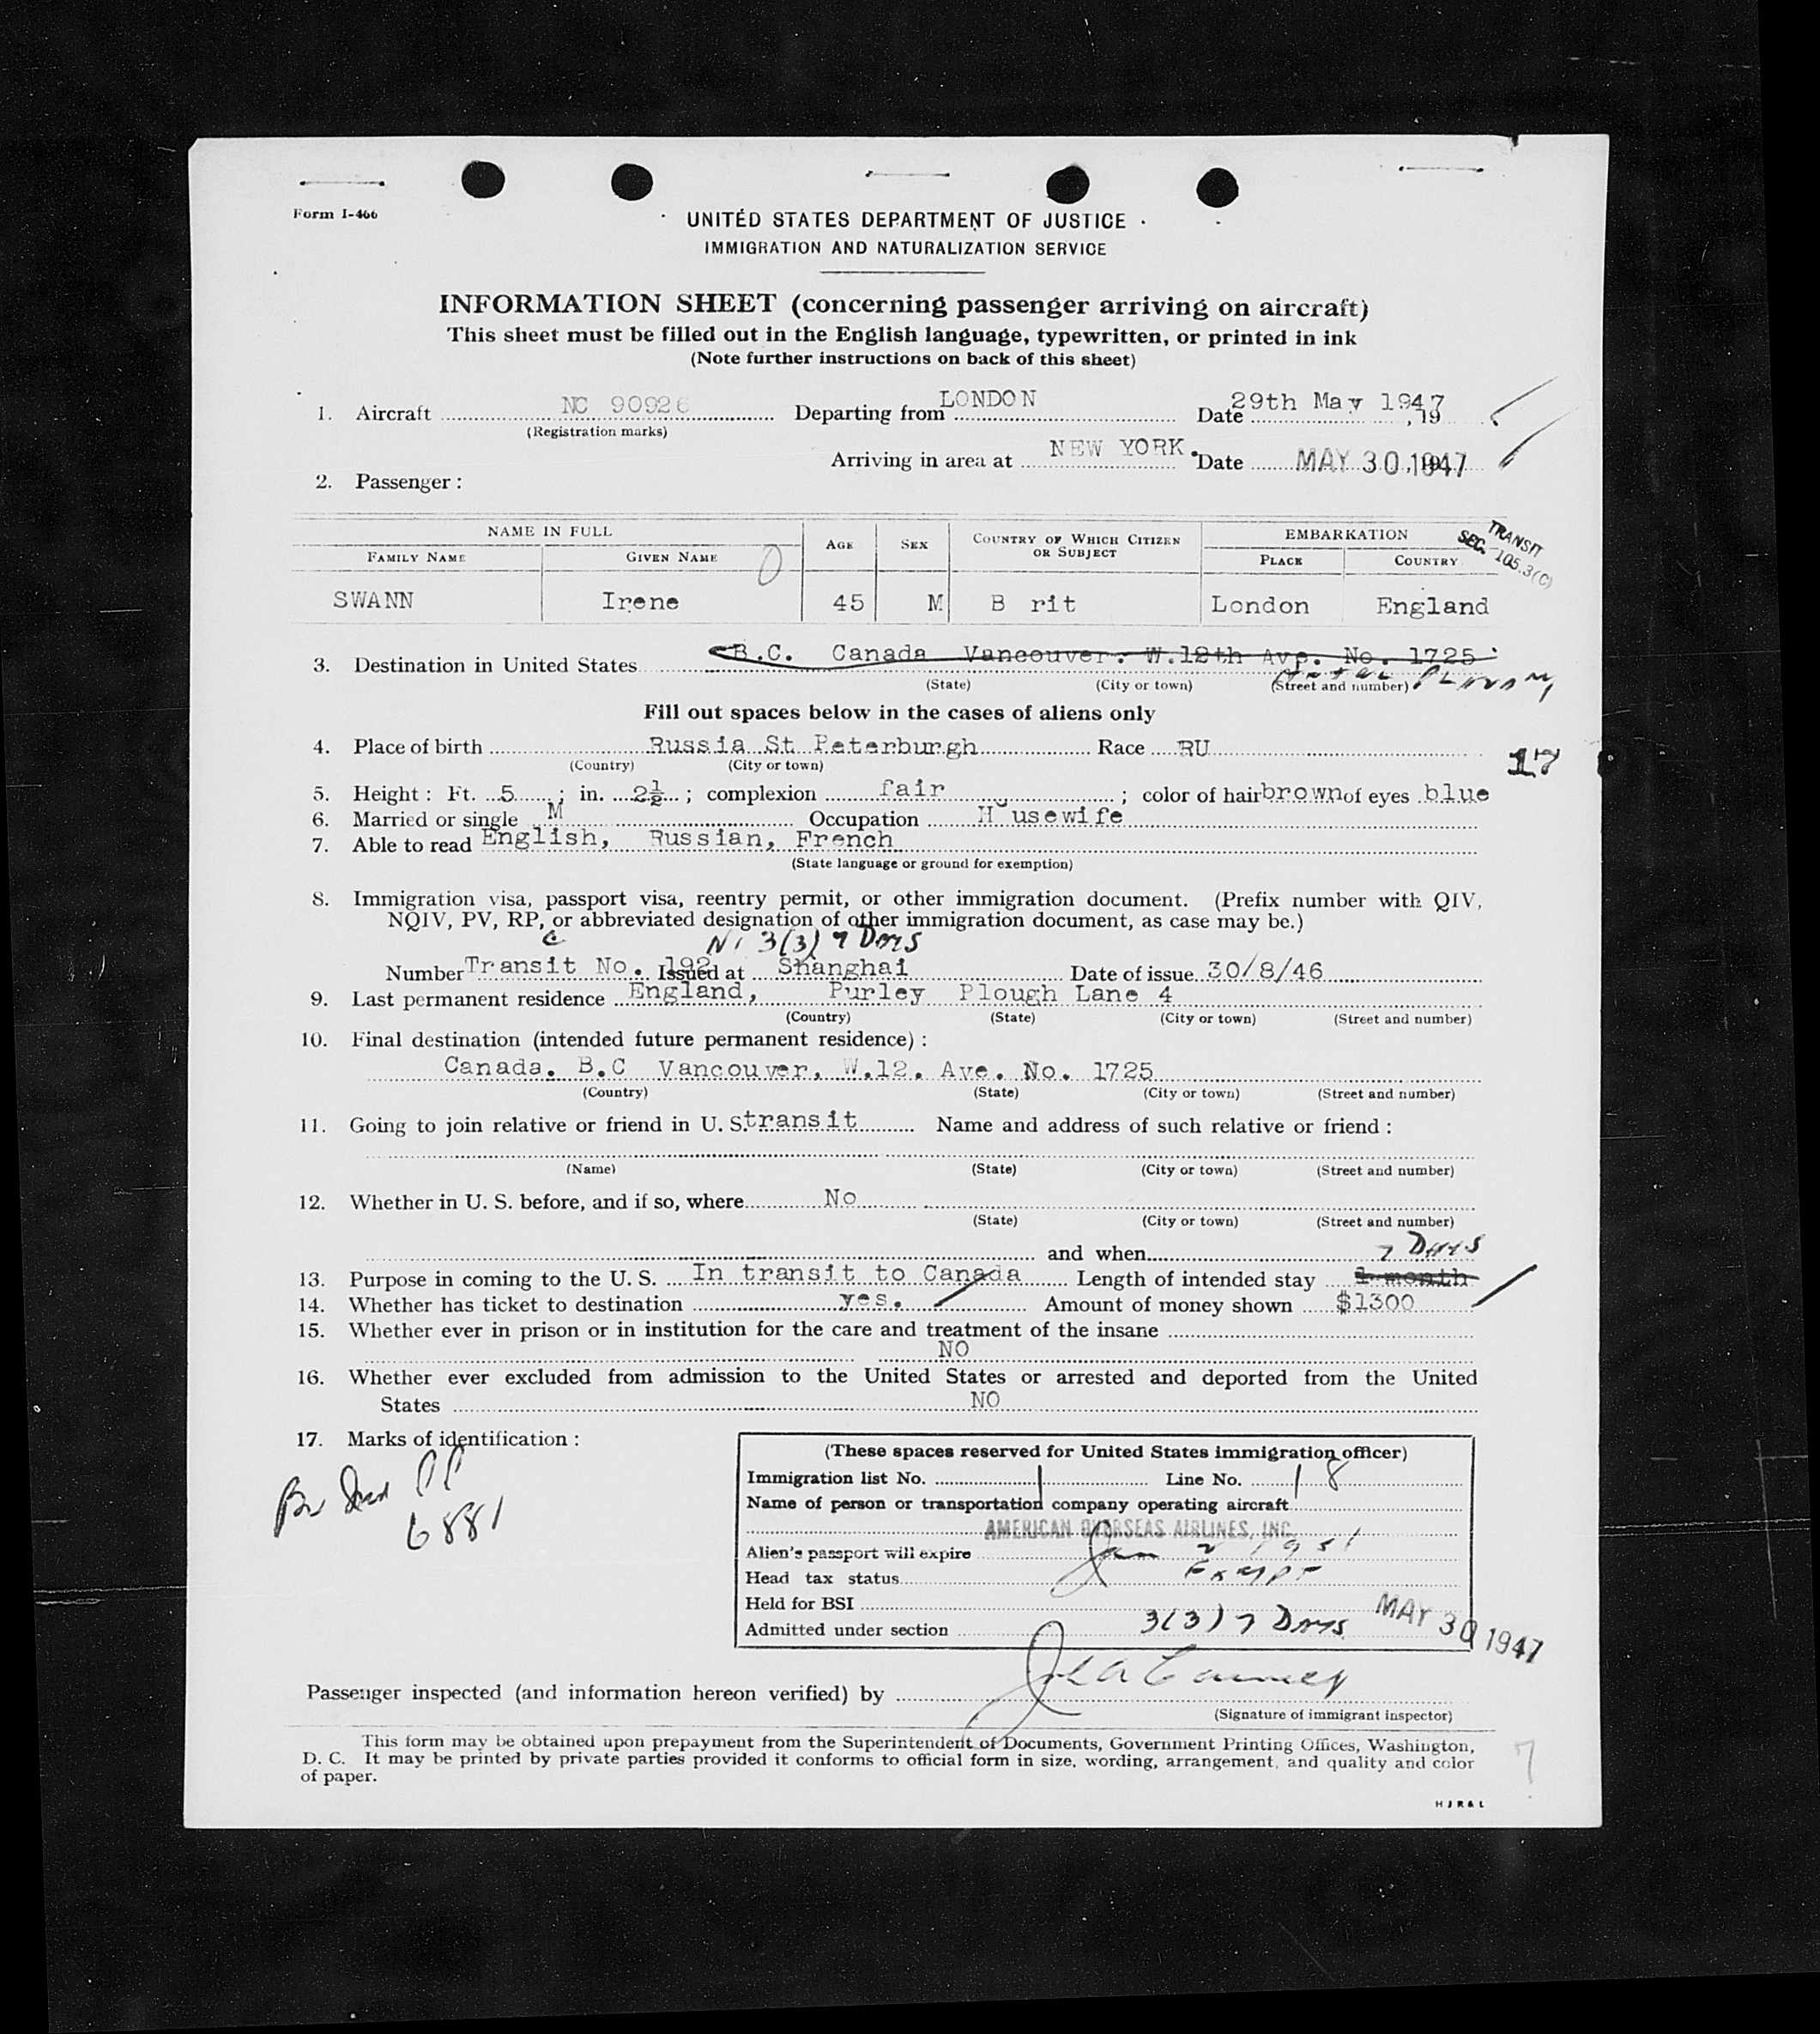 Form I-466
UNITED STATES DEPARTMENT OF JUSTICE
IMMIGRATION AND NATURALIZATION SERVICE
INFORMATION SHEET (concerning passenger arriving on aircraft)
This sheet must be filled out in the English language, typewritten, or printed in ink
(Note further instructions on back of this sheet)
1. Aircraft NC 90926 Departing from LONDON Date 29th May 1947, 19
(Registration marks)
Arriving in area at NEW YORK. Date MAY 30, 1947
2. Passenger:
NAME IN FULL AGE SEX COUNTRY OF WHICH CITIZEN OR SUBJECT EMBARKATION
FAMILY NAME GIVEN NAME PLACE COUNTRY
TRANSIT
SEC. 105.3(C)
SWANN Irene 45 M B rit London England
3. Destination in United States B.C. Canada Vancouver. W.12th Ave. No. 1725
(State) (City or town) (Street and number)
Fill out spaces below in the cases of aliens only
4. Place of birth Russia St Peterburgh Race RU
(Country) (City or town)
17
5. Height: Ft. 5; in. 2½; complexion fair; color of hair brown of eyes blue
6. Married or single M Occupation H usewife
7. Able to read English, Russian, French
(State language or ground for exemption)
8. Immigration visa, passport visa, reentry permit, or other immigration document. (Prefix number with QIV,
NQIV, PV, RP, or abbreviated designation of other immigration document, as case may be.)
3(3) 7 DAYS
Number Transit No. 192 Issued at Shanghai Date of issue 30/8/46
9. Last permanent residence England, Purley Plough Lane 4
(Country) (State) (City or town) (Street and number)
10. Final destination (intended future permanent residence):
Canada. B.C Vancouver, W.12. Ave. No. 1725
(Country) (State) (City or town) (Street and number)
11. Going to join relative or friend in U. S. transit Name and address of such relative or friend:
(Name) (State) (City or town) (Street and number)
12. Whether in U. S. before, and if so, where No
(State) (City or town) (Street and number)
and when 7 DAYS
13. Purpose in coming to the U. S. In transit to Canada Length of intended stay 1 month
14. Whether has ticket to destination yes. Amount of money shown $1300
15. Whether ever in prison or in institution for the care and treatment of the insane
NO
16. Whether ever excluded from admission to the United States or arrested and deported from the United
States NO
17. Marks of identification:
6881
(These spaces reserved for United States immigration officer)
Immigration list No. 1 Line No. 18
Name of person or transportation company operating aircraft
AMERICAN OVERSEAS AIRLINES, INC.
Alien's passport will expire Jan 2 1951
Head tax status EXMPT
Held for BSI
Admitted under section 3(3) 7 DAYS MAY 30 1947
Passenger inspected (and information hereon verified) by
(Signature of immigrant inspector)
This form may be obtained upon prepayment from the Superintendent of Documents, Government Printing Offices, Washington,
D. C. It may be printed by private parties provided it conforms to official form in size, wording, arrangement, and quality and color
of paper.
7
H J R & L